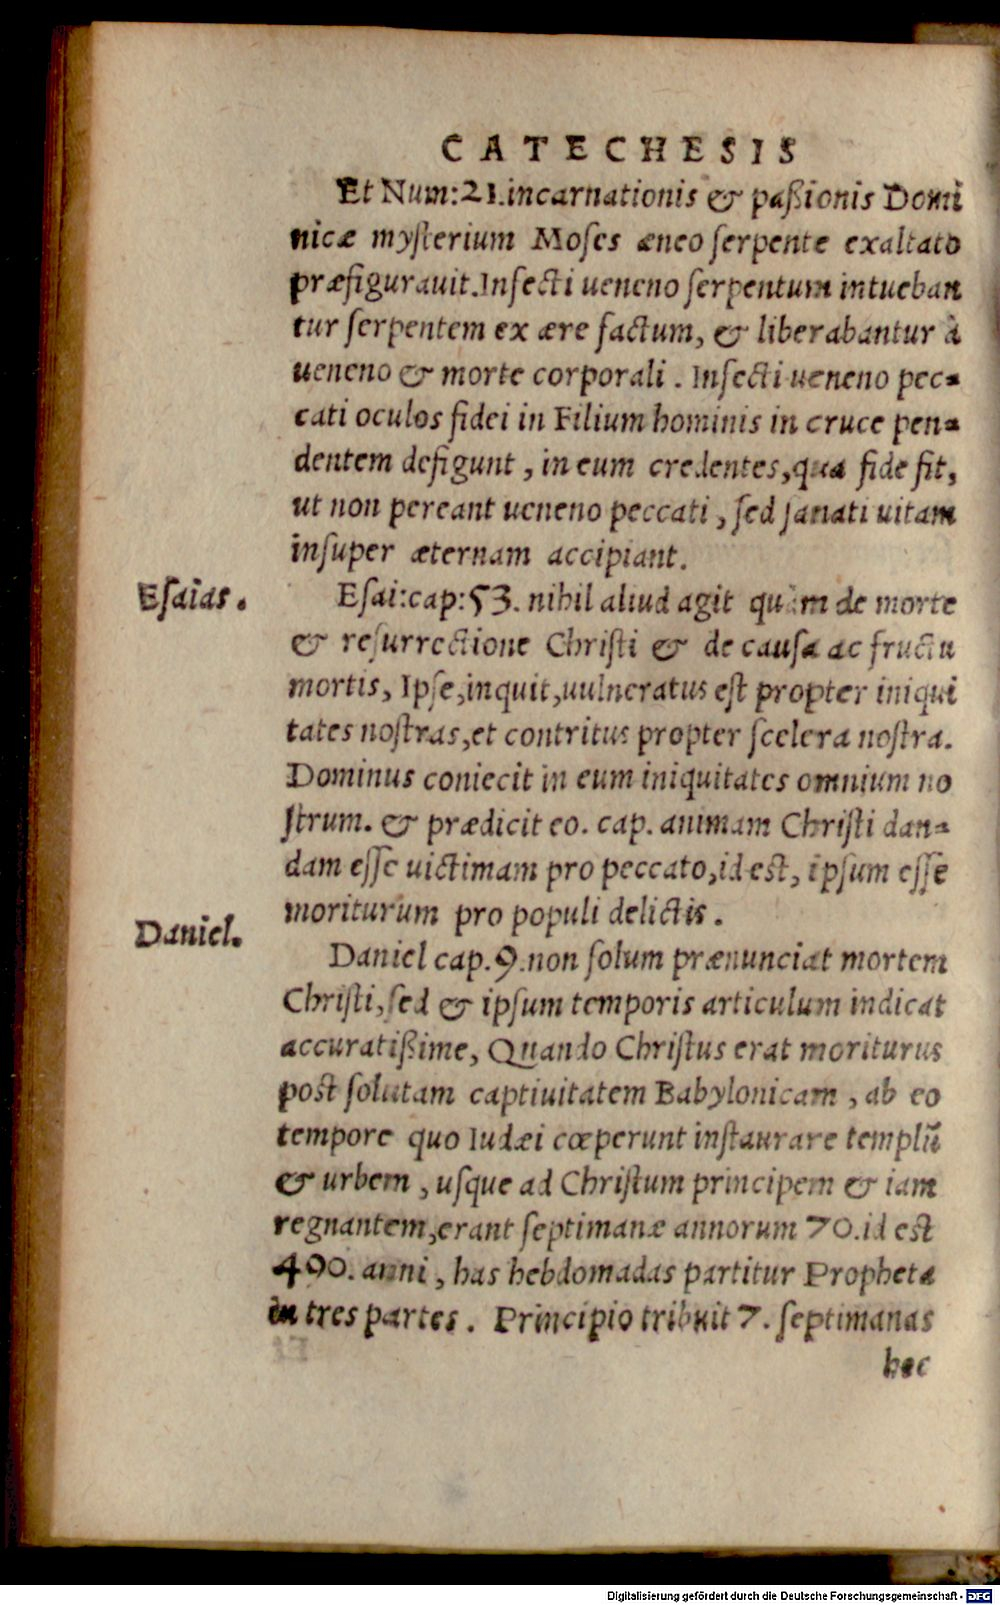 CATECHESIS
Et Num:21.incarnationis & paßionis Domi
nicæ mysterium Moses æneo serpente exaltato
præfigurauit.Infecti ueneno serpentum intueban
tur serpentem ex ære factum, & liberabantur à
ueneno & morte corporali . Infecti ueneno pec-
cati oculos fidei in Filium hominis in cruce pen-
dentem defigunt , in eum credentes,qua fide fit,
ut non pereant ueneno peccati , sed sanati uitam
insuper æternam accipiant.
Esaias.
Esai:cap:53. nihil aliud agit quàm de morte
& resurrectione Christi & de causa ac fructu
mortis, Ipse,inquit,uulneratus est propter iniqui
tates nostras,et contritus propter scelera nostra.
Dominus coniecit in eum iniquitates omnium no
strum. & prædicit eo. cap. animam Christi dan-
dam esse uictimam pro peccato,id est, ipsum esse
moriturum pro populi delictis .
Daniel.
Daniel cap.9.non solum prænunciat mortem
Christi,sed & ipsum temporis articulum indicat
accuratißime, Quando Christus erat moriturus
post solutam captiuitatem Babylonicam , ab eo
tempore quo Iudæi cœperunt instaurare templũ
& urbem , usque ad Christum principem & iam
regnantem,erant septimanæ annorum 70.id est
490. anni , has hebdomadas partitur Propheta
in tres partes . Principio tribuit 7. septimanas
hec
Digitalisierung gefördert durch die Deutsche Forschungsgemeinschaft - DFG